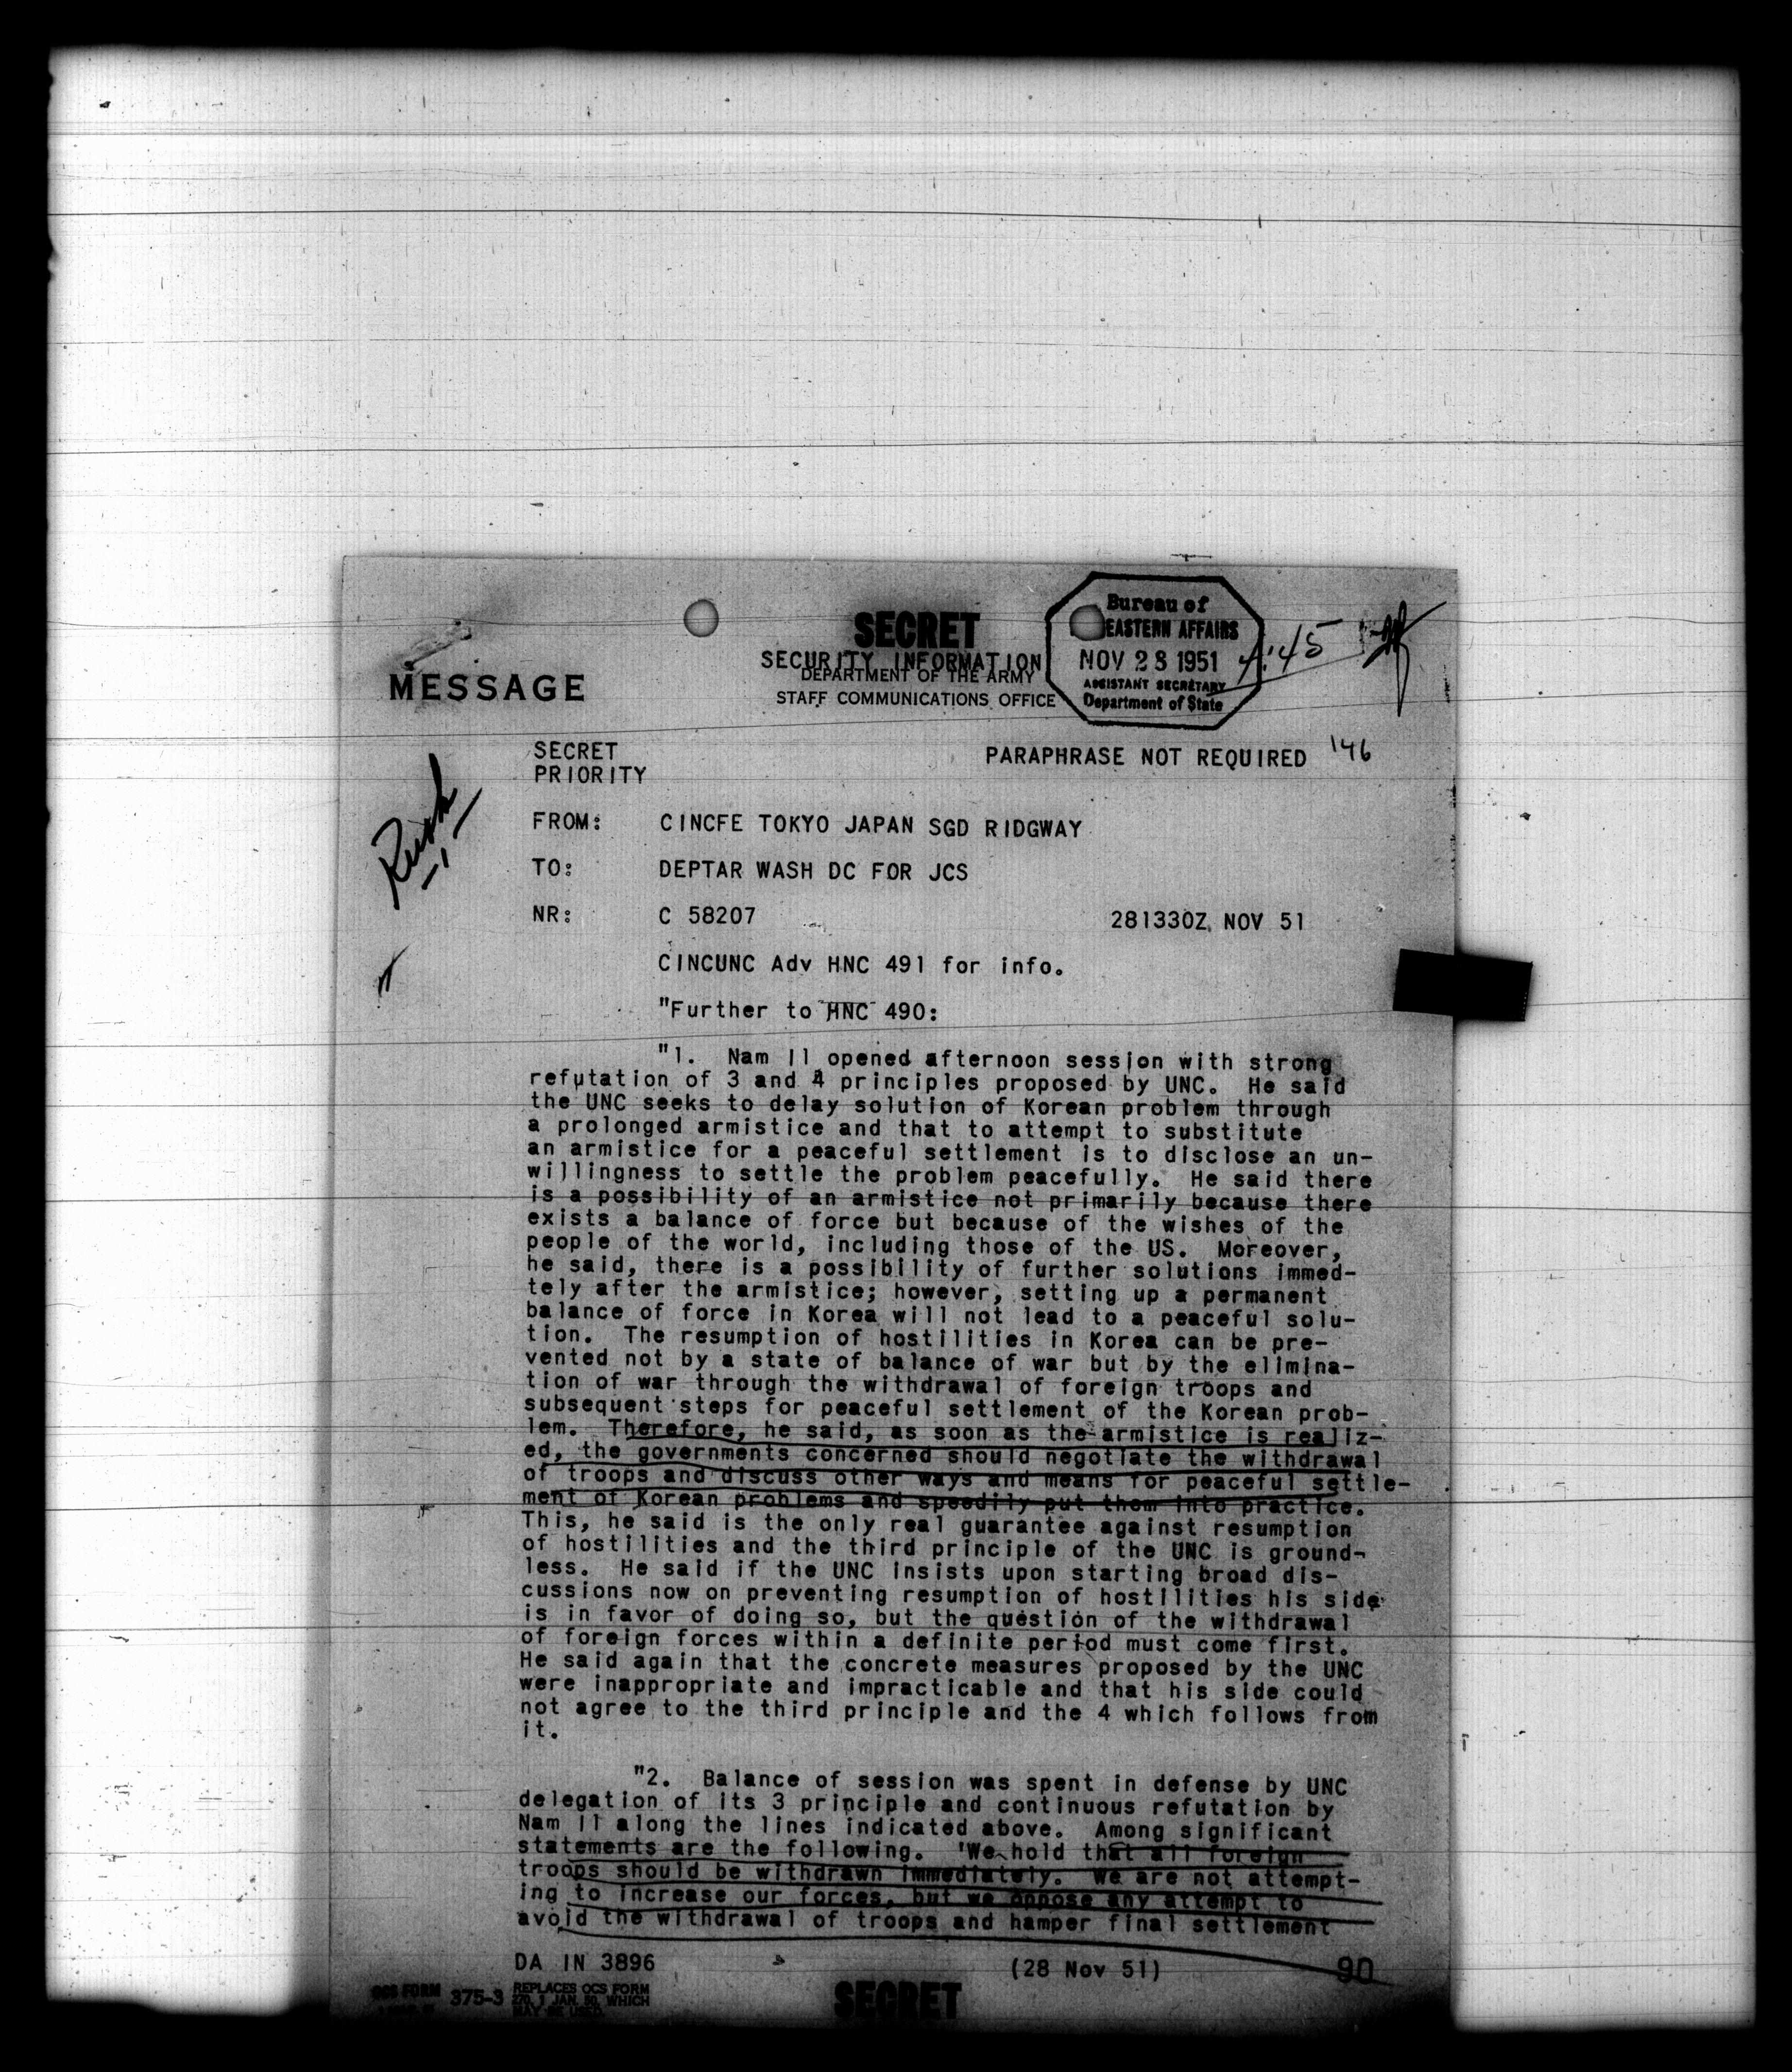 SECRET
SECURITY INFORMATION
DEPARTMENT OF THE ARMY
STAFF COMMUNICATIONS OFFICE
MESSAGE
Bureau of
EASTERN AFFAIRS
NOV 28 1951
ASSISTANT SECRETARY
Department of State
4:45
SECRET
PRIORITY
PARAPHRASE NOT REQUIRED 146
FROM: CINCFE TOKYO JAPAN SGD RIDGWAY
TO: DEPTAR WASH DC FOR JCS
NR: C 58207 281330Z NOV 51
CINCUNC Adv HNC 491 for info.
"Further to HNC 490:
"1. Nam Il opened afternoon session with strong
refutation of 3 and 4 principles proposed by UNC. He said
the UNC seeks to delay solution of Korean problem through
a prolonged armistice and that to attempt to substitute
an armistice for a peaceful settlement is to disclose an un-
willingness to settle the problem peacefully. He said there
is a possibility of an armistice not primarily because there
exists a balance of force but because of the wishes of the
people of the world, including those of the US. Moreover,
he said, there is a possibility of further solutions immed-
tely after the armistice; however, setting up a permanent
balance of force in Korea will not lead to a peaceful solu-
tion. The resumption of hostilities in Korea can be pre-
vented not by a state of balance of war but by the elimina-
tion of war through the withdrawal of foreign troops and
subsequent steps for peaceful settlement of the Korean prob-
lem. Therefore, he said, as soon as the armistice is realiz-
ed, the governments concerned should negotiate the withdrawal
of troops and discuss other ways and means for peaceful settle-
ment of Korean problems and speedily put them into practice.
This, he said is the only real guarantee against resumption
of hostilities and the third principle of the UNC is ground-
less. He said if the UNC insists upon starting broad dis-
cussions now on preventing resumption of hostilities his side
is in favor of doing so, but the question of the withdrawal
of foreign forces within a definite period must come first.
He said again that the concrete measures proposed by the UNC
were inappropriate and impracticable and that his side could
not agree to the third principle and the 4 which follows from
it.
"2. Balance of session was spent in defense by UNC
delegation of its 3 principle and continuous refutation by
Nam Il along the lines indicated above. Among significant
statements are the following. 'We hold that all foreign
troops should be withdrawn immediately. We are not attempt-
ing to increase our forces, but we oppose any attempt to
avoid the withdrawal of troops and hamper final settlement
DA IN 3896 (28 Nov 51) 90
OCS FORM 375-3 REPLACES OCS FORM
270, 1 JAN. 50, WHICH
MAY BE USED.
SECRET